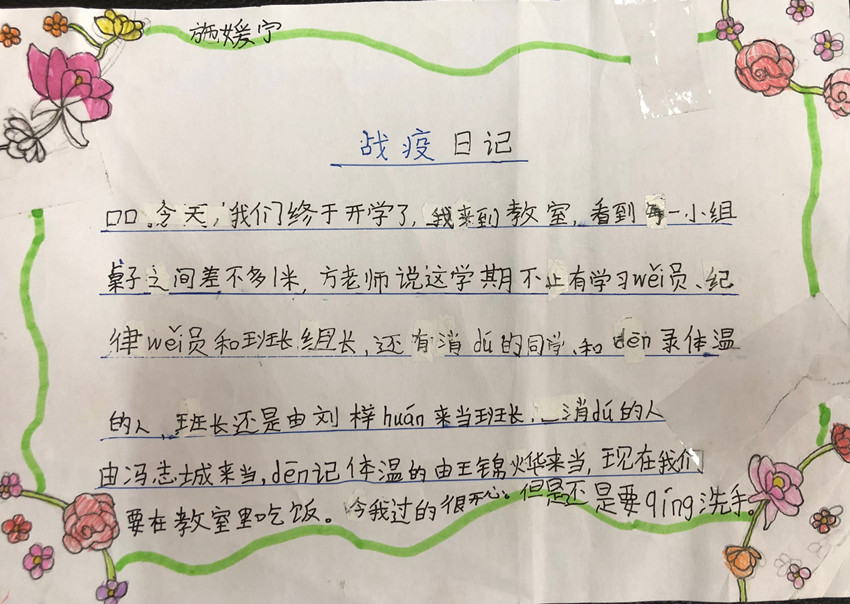 施媛宁
战疫日记
口口今天,我们终于开学了,我来到教室,看到每一小组
桌子之间差不多1米,方老师说这学期不止有学习wěi员、纪
律wěi员和班长组长,还有消dú的同学、和dēn录体温
的人,班长还是由刘梓huán来当班长,消dú的人
由冯志城来当,dēn记体温的由王锦烨来当,现在我们
要在教室里吃饭。今我过的很开心。但是还是要qíng洗手。